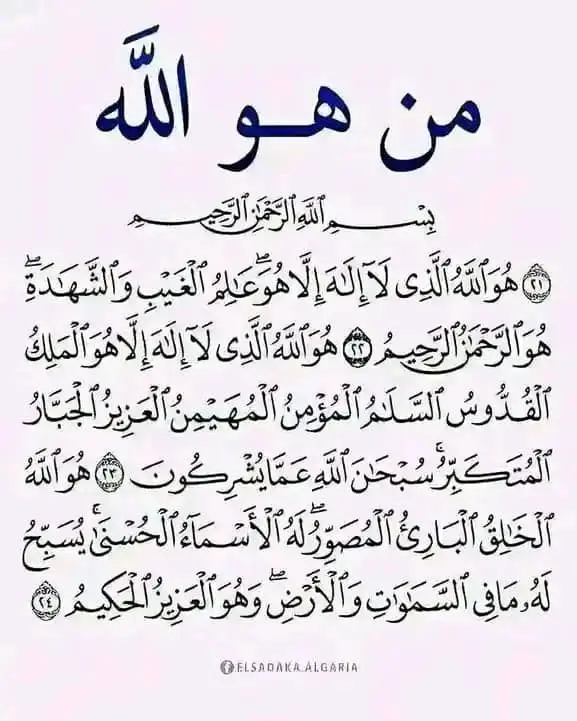 من هو الله
بِسْمِ ٱللَّهِ ٱلرَّحْمَٰنِ ٱلرَّحِيمِ
﴿٢١﴾ هُوَ ٱللَّهُ ٱلَّذِى لَآ إِلَٰهَ إِلَّا هُوَۖ عَٰلِمُ ٱلْغَيْبِ وَٱلشَّهَٰدَةِۖ
هُوَ ٱلرَّحْمَٰنُ ٱلرَّحِيمُ ﴿٢٢﴾ هُوَ ٱللَّهُ ٱلَّذِى لَآ إِلَٰهَ إِلَّا هُوَ ٱلْمَلِكُ
ٱلْقُدُّوسُ ٱلسَّلَٰمُ ٱلْمُؤْمِنُ ٱلْمُهَيْمِنُ ٱلْعَزِيزُ ٱلْجَبَّارُ
ٱلْمُتَكَبِّرُۚ سُبْحَٰنَ ٱللَّهِ عَمَّا يُشْرِكُونَ ﴿٢٣﴾ هُوَ ٱللَّهُ
ٱلْخَٰلِقُ ٱلْبَارِئُ ٱلْمُصَوِّرُۖ لَهُ ٱلْأَسْمَآءُ ٱلْحُسْنَىٰۚ يُسَبِّحُ
لَهُۥ مَا فِى ٱلسَّمَٰوَٰتِ وَٱلْأَرْضِۖ وَهُوَ ٱلْعَزِيزُ ٱلْحَكِيمُ ﴿٢٤﴾
ELSADAKA.ALGARIA